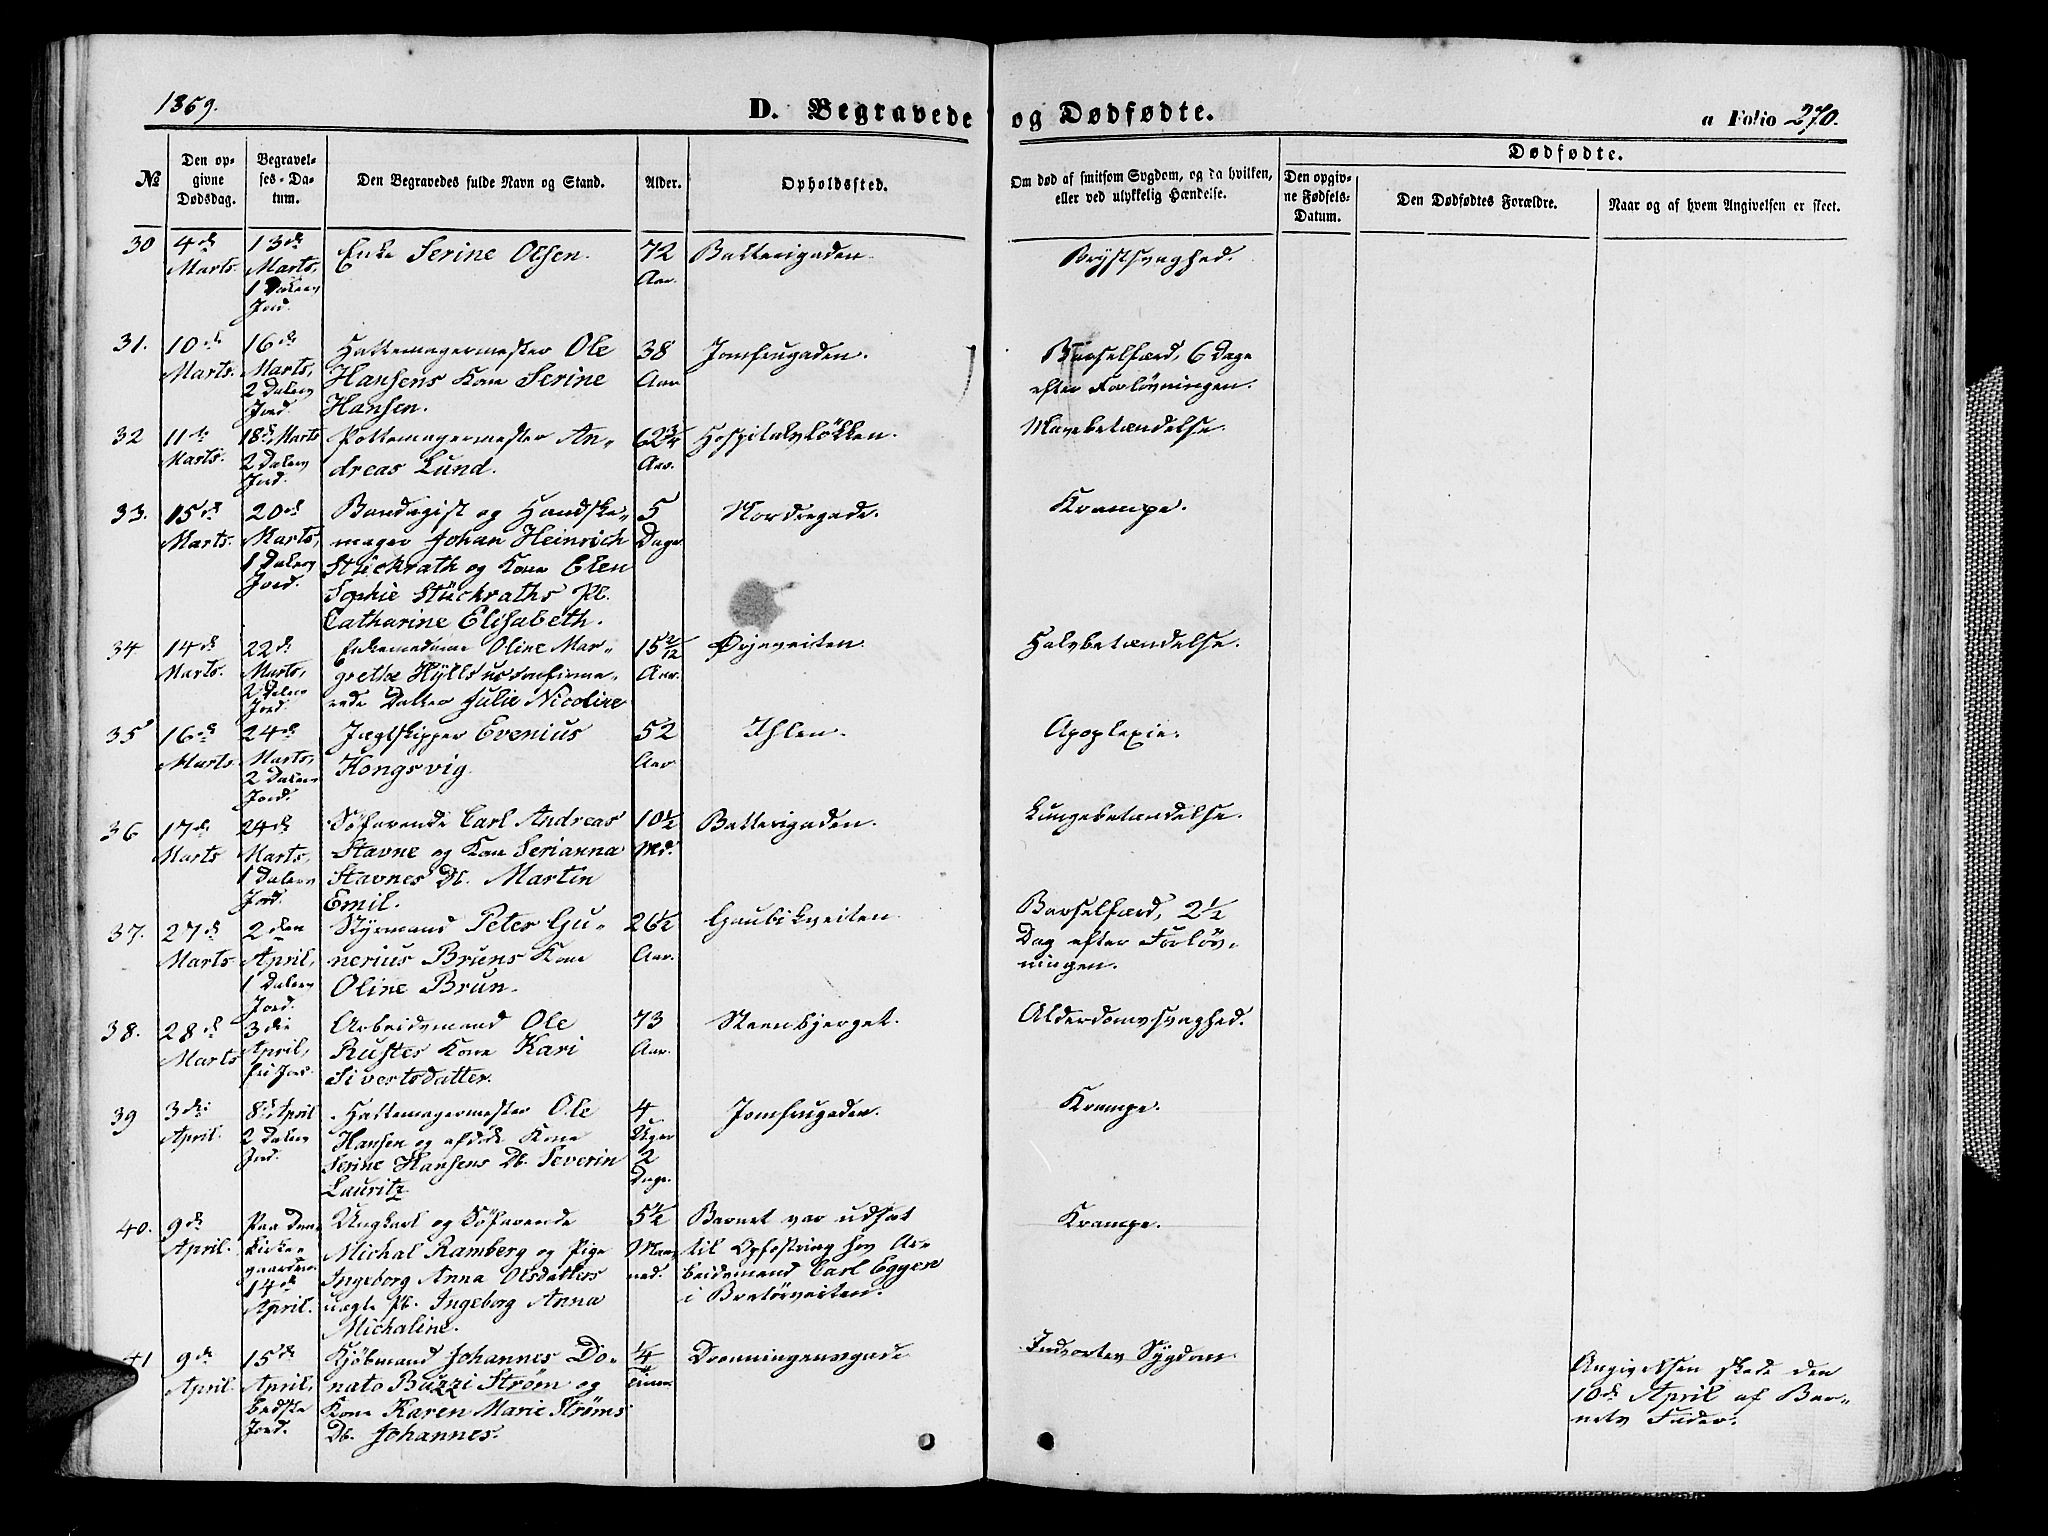 1869.
D. Begravede og Dødfødte.
a Folio 270.
№
Den opgivne Dødsdag.
Begravelses-Datum.
Den Begravedes fulde Navn og Stand.
Alder.
Opholdssted.
Om død af smitsom Sygdom, og da hvilken,
eller ved ulykkelig Hændelse.
Dødfødte.
Den opgivne Fødsels-Datum.
Den Dødfødtes Forældre.
Naar og af hvem Angivelsen er skeet.
30 4de Marts. 13de Marts, 1 Dalers Jord. Enke Serine Olsen. 72 Aar. Batterigaden. Brystsvaghed.
31. 10de Marts. 16de Marts, 2 Dalers Jord. Hattemagermester Ole
Hansens Kone Serine
Hansen. 38 Aar Jomfrugaden. Barselfærd, 6 Dage
efter Forløsningen.
32 11te Marts. 18de Marts 2 Dalers Jord. Pottemagermester An-
dreas Lund. 62 3/4 Aar. Hospitalsløkken. Mavebetændelse.
33. 15de Marts. 20de Marts, 1 Dalers Jord. Bandagist og Handske-
mager Johan Heinrich
Stückrath og Kone Elen
Sophie Stückraths Pb.
Catharine Elisabeth. 5 Dage Nordregade. Krampe.
34 14de Marts. 22de Marts, 2 Dalers Jord. Enkemadame Oline Mar-
grethe Hylls uconfirme-
rede Datter Julie Nicoline 15 2/12 Aar. Øijeveiten Halsbetændelse.
35 16de Marts 24de Marts, 2 Dalers Jord. Jægtskipper Evenius
Kongsvig. 52 Aar Ihlen. Apoplexie.
36 17de Marts 24de Marts, 1 Dalers Jord. Søfarende Carl Andreas
Stavne og Kone Serianna
Stavnes Db. Martin
Emil. 10 1/2 Md. Batterigaden. Lungebetændelse.
37. 27de Marts 2den April, 1 Dalers Jord. Styrmand Peter Gu-
nerius Bruns Kone
Oline Brun. 26 1/2 Aar. Gaubækveiten Barselfærd, 2 1/2
Dag efter Forløs-
ningen.
38. 28de Marts 3die April, fri Jord. Arbeidsmand Ole
Rustes Kone Kari
Sivertsdatter. 73 Aar. Steenbjerget. Alderdomssvaghed.
39 3die April. 8de April 2 Dalers Jord. Hattemagermester Ole
Hansen og afdøde Kone
Serine Hansens Db. Severin
Lauritz 4 Uger 2 Dage. Jomfrugaden. Krampe.
40. 9de April. Paa Domkirkegaarden 14de April. Ungkarl og Søfarende
Michal Ramberg og Pige
Ingeborg Anna Olsdatters
uægte Pb. Ingeborg Anna
Michaline. 5 1/2 Maaned. Barnet var udsat
til Opfostring hos Ar-
beidsmand Carl Eggen
i Bratørveiten. Krampe.
41 9de April. 15de April, bedste Jord. Kjøbmand Johannes Do-
nato Buzzi Strøm og
Kone Karen Marie Strøms
Db. Johannes. 1/4 Time. Dronningensgade Indvortes Sygdom Angivelsen skede den
10de April af Bar-
nets Fader.